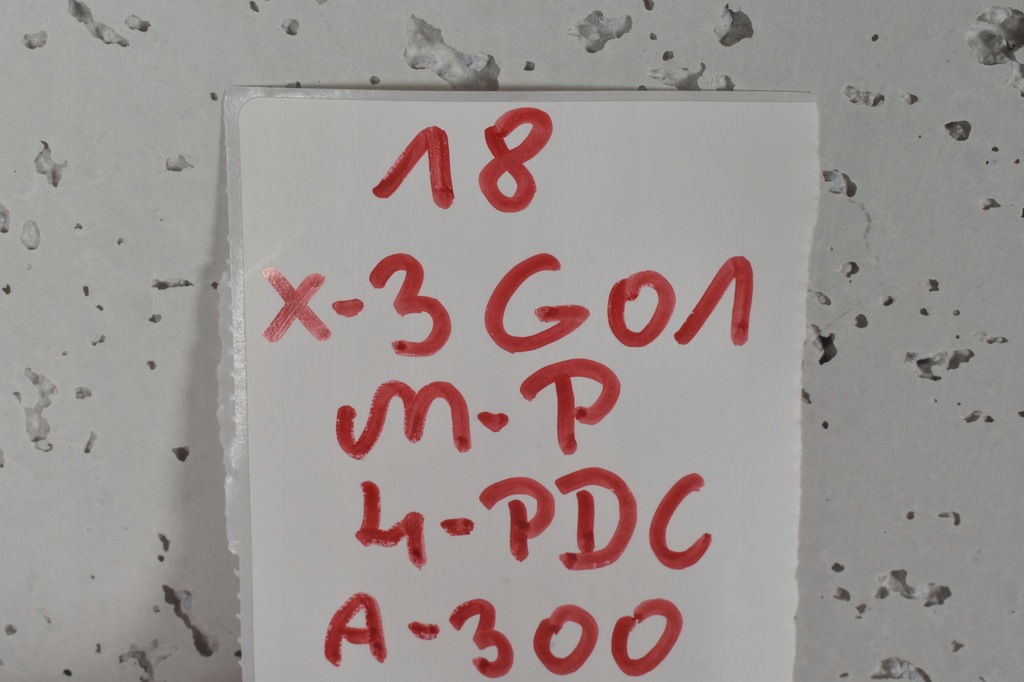 18
X-3G01
M-P
4-PDC
A-300